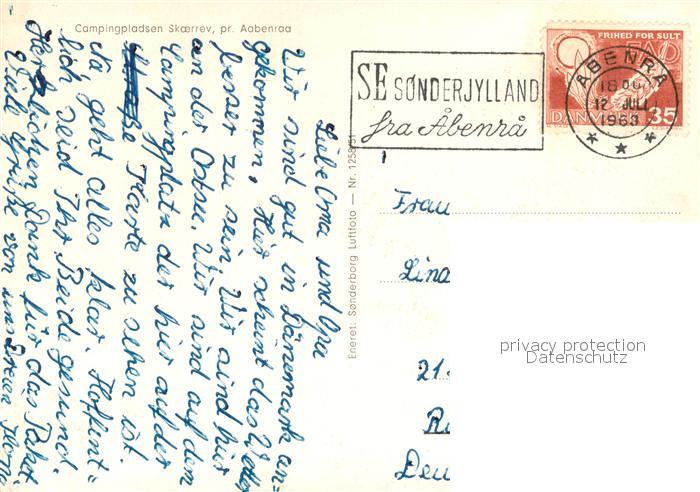 Campingpladsen Skærrev, pr. Aabenraa
FRIHED FOR SULT
FAO
DANMARK 35
ÅBENRÅ
18
12 JULI
1963
SE SØNDERJYLLAND
fra Åbenrå
Eneret: Sønderborg Luftfoto — Nr. 1258/51
Liebe Oma und Opa
Wir sind gut in Dänemark an=
gekommen, Hier scheint das Wetter
besser zu sein. Wir sind hier
an der Ostsee. Wir sind auf dem
Campingplatz der hier auf der
Karte zu sehen ist.
geht alles klar Hoffent=
lich seid Ihr Beide gesund.
Herzlichen Dank für das Paket
Viele Grüße von uns Dreien
Frau
Lina
21.
privacy protection
Datenschutz